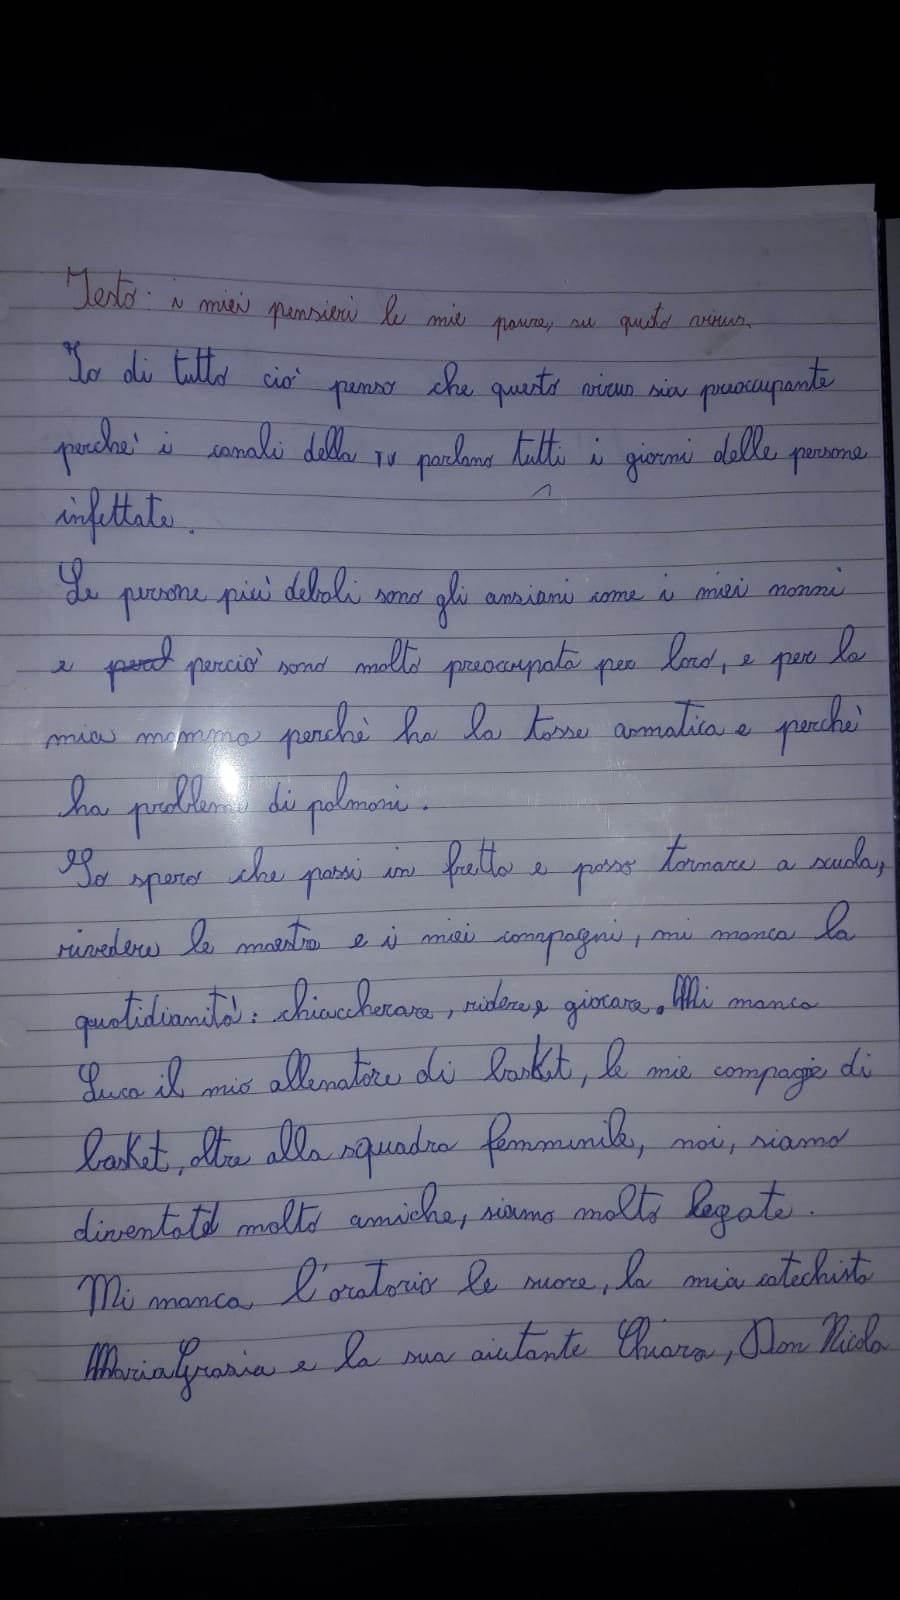 Testo: i miei pensieri le mie paure, su questo virus.
Io di tutto ciò penso che questo virus sia preoccupante
perchè i canali della TV parlano tutti i giorni delle persone
infettate.
Le persone più deboli sono gli anziani come i miei nonni
e perciò sono molto preoccupata per loro, e per la
mia mamma perchè ha la tosse asmatica e perchè
ha problemi di polmoni.
Io spero che passi in fretta e posso tornare a scuola,
rivedere le maestre e i miei compagni, mi manca la
quotidianità: chiaccherare, ridere e giocare. Mi manca
Luca il mio allenatore di basket, le mie compagie di
basket, oltre alla squadra femminile, noi, siamo
diventate molto amiche, siamo molto legate.
Mi manca l'oratorio le suore, la mia catechista
MariaGrazia e la sua aiutante Chiara, Don Nicola